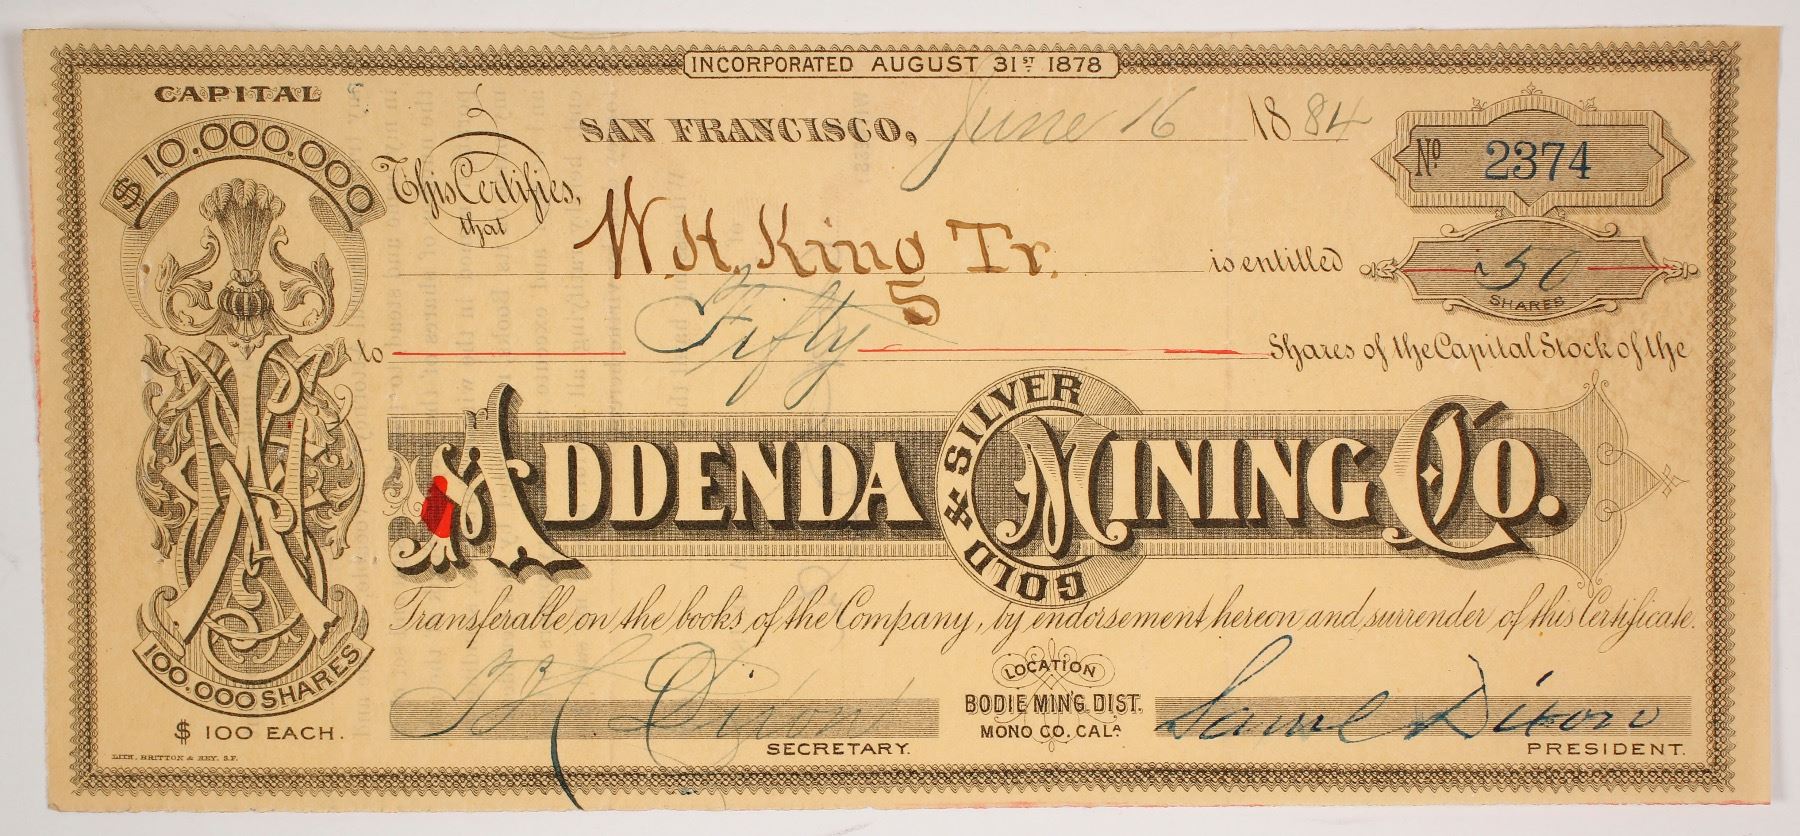 INCORPORATED AUGUST 31ST 1878
CAPITAL
$10.000.000
SAN FRANCISCO, June 16 1884
No 2374
This Certifies,
that W. H. King Tr. is entitled
50
SHARES
5
to Fifty Shares of the Capital Stock of the
ADDENDA GOLD & SILVER MINING CO.
Transferable on the books of the Company, by endorsement hereon and surrender of this Certificate.
100.000 SHARES
$100 EACH.
LOCATION
BODIE MIN'G. DIST.
MONO CO. CALA
Dixon
SECRETARY.
Saml Dixon
PRESIDENT.
LITH. BRITTON & REY. S.F.